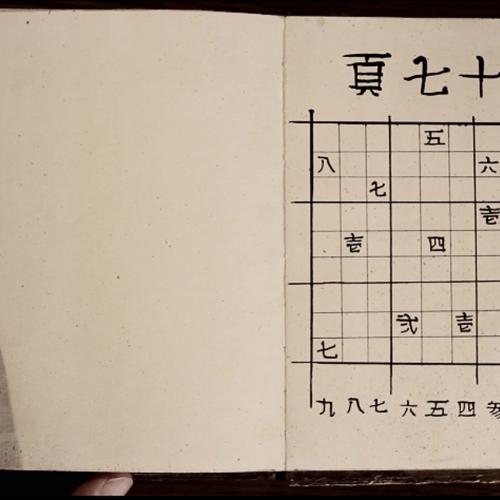 十七頁
五
六 八
七
壱
四 壱
壱 弐
七
四 五 六 七 八 九